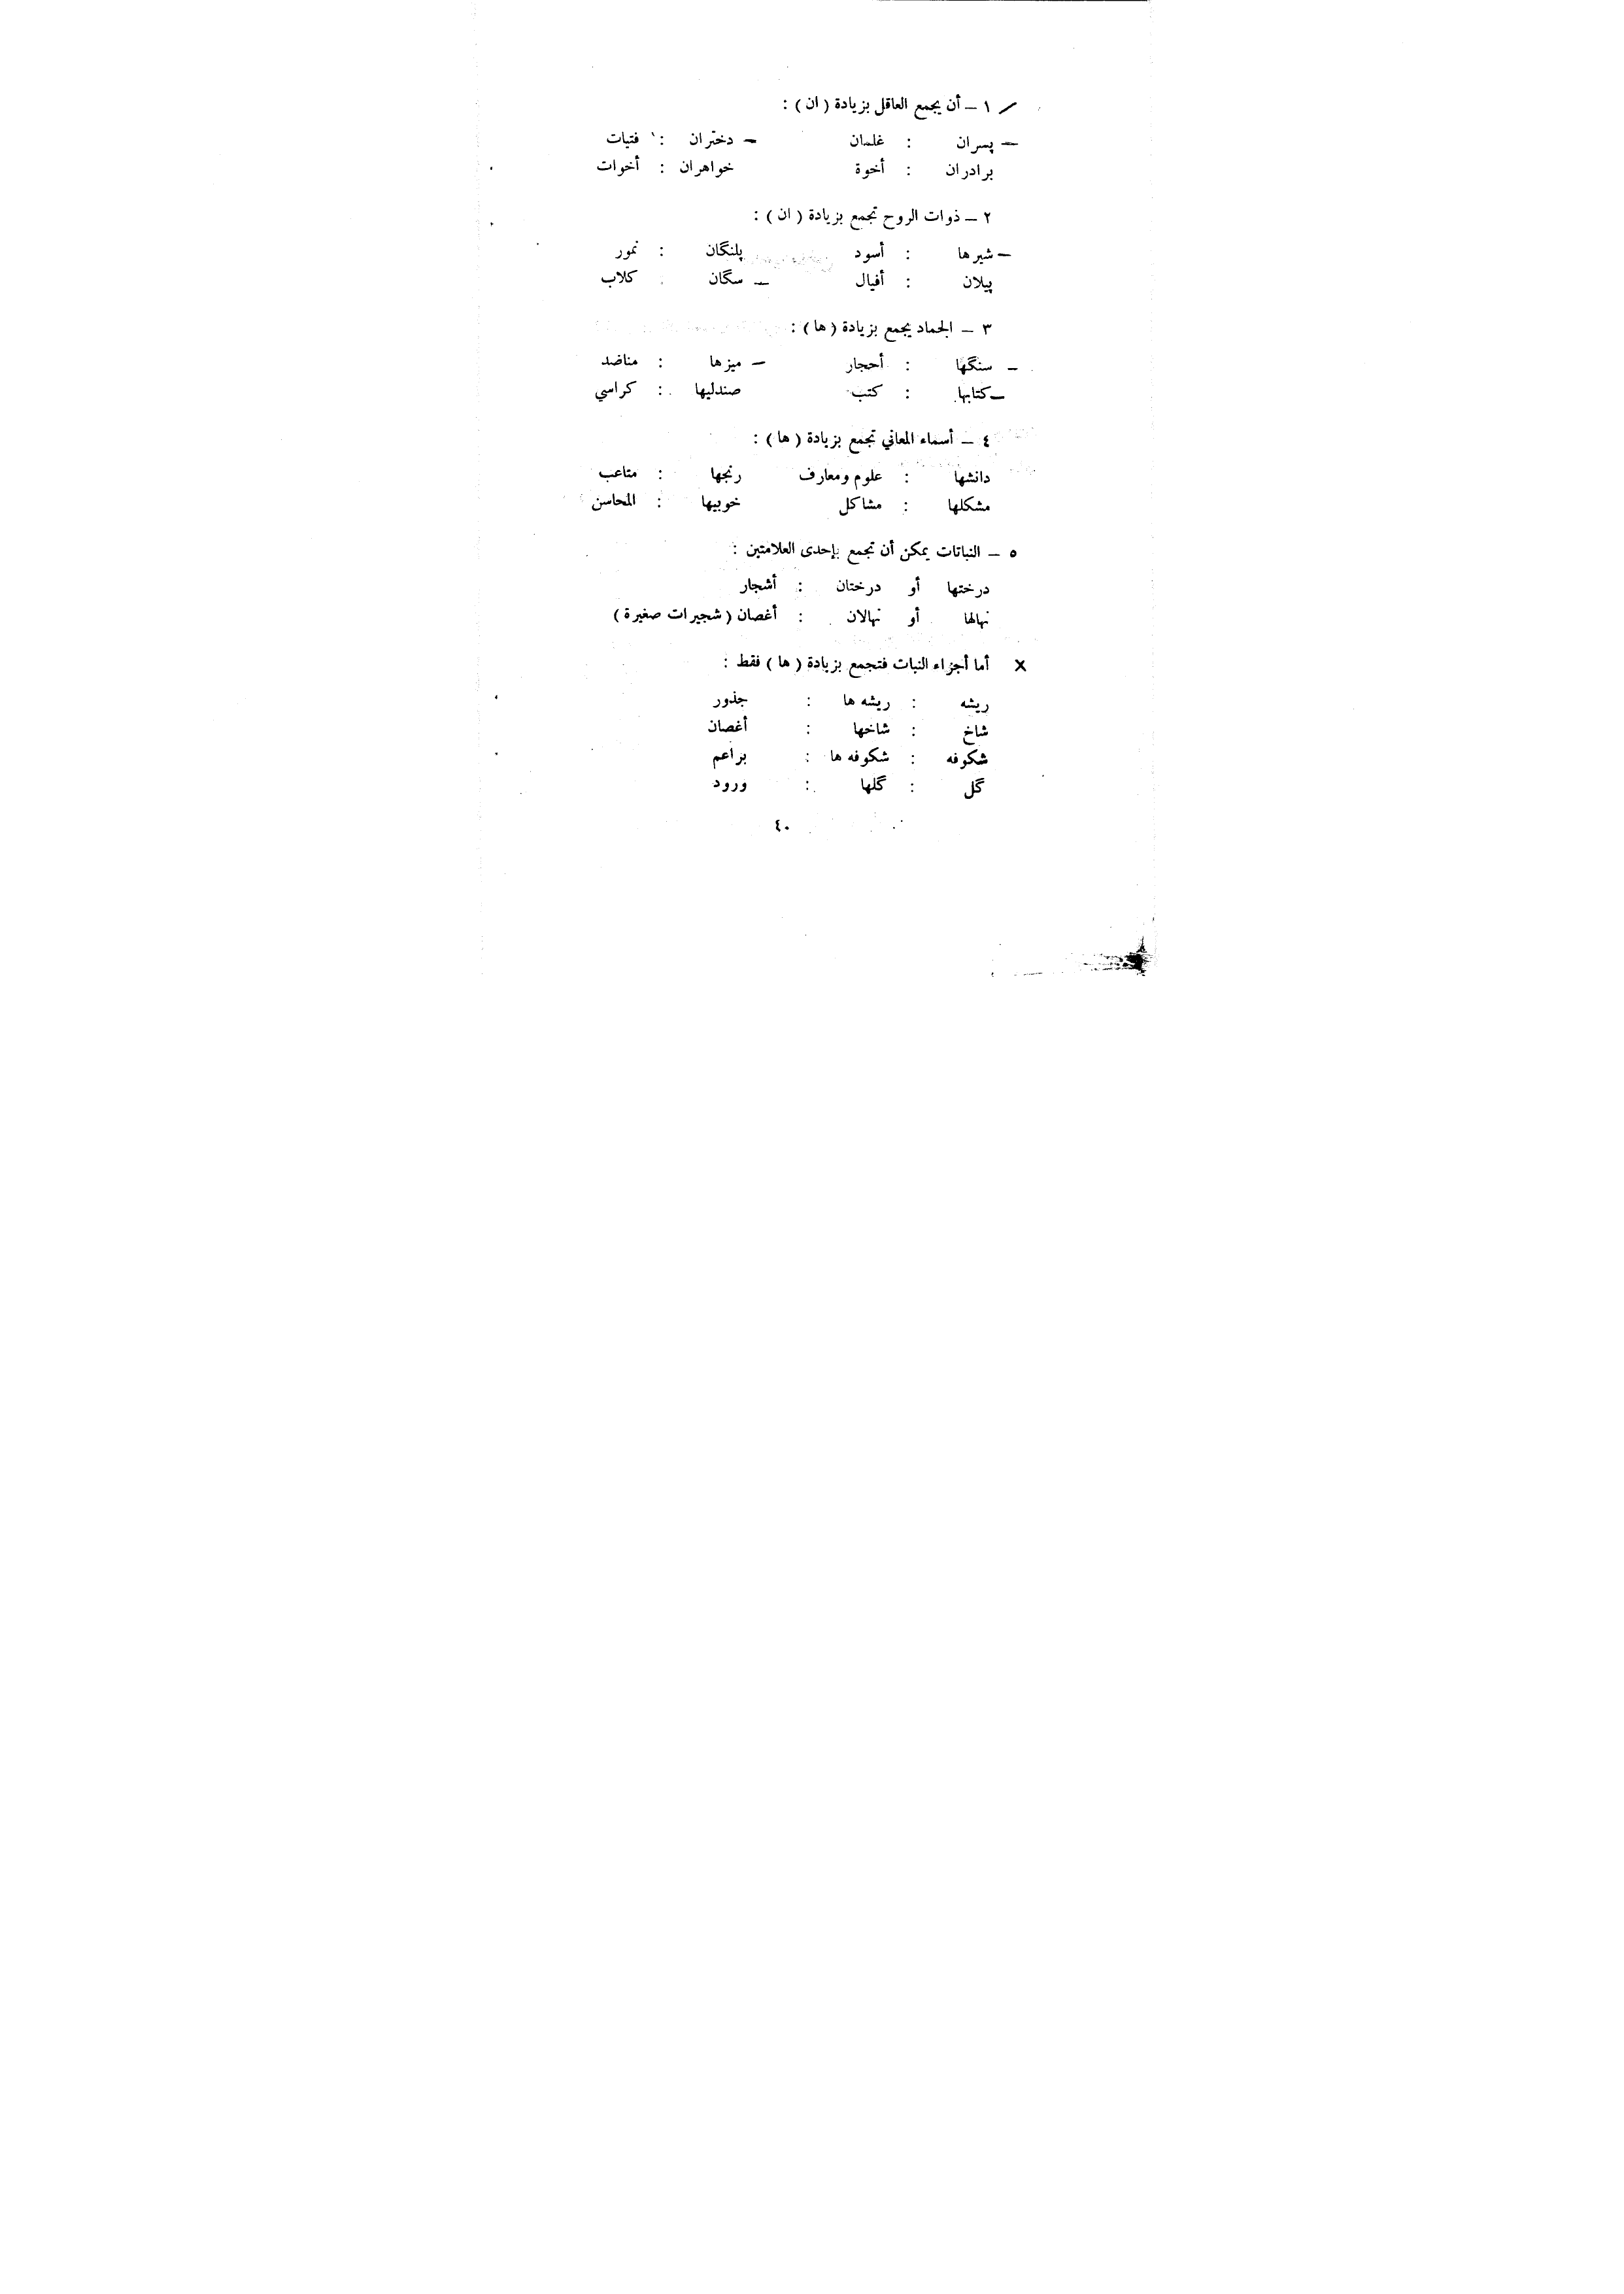 ١ ـ أن يجمع العاقل بزيادة ( ان ) :
ـ پسران : غلمان ـ دختران : فتيات
برادران : أخوة خواهران : أخوات
٢ ـ ذوات الروح تجمع بزيادة ( ان ) :
ـ شيرها : أسود پلنگان : نمور
پيلان : أفيال ـ سگان : كلاب
٣ ـ الجماد يجمع بزيادة ( ها ) :
ـ سنگها : أحجار ـ ميزها : مناضد
ـ كتابها : كتب صندليها : كراسي
٤ ـ أسماء المعاني تجمع بزيادة ( ها ) :
دانشها : علوم ومعارف رنجها : متاعب
مشكلها : مشاكل خوبيها : المحاسن
٥ ـ النباتات يمكن أن تجمع بإحدى العلامتين :
درختها أو درختان : أشجار
نهالها أو نهالان : أغصان ( شجيرات صغيرة )
× أما أجزاء النبات فتجمع بزيادة ( ها ) فقط :
ريشه : ريشه ها : جذور
شاخ : شاخها : أغصان
شكوفه : شكوفه ها : براعم
گل : گلها : ورود
٤٠